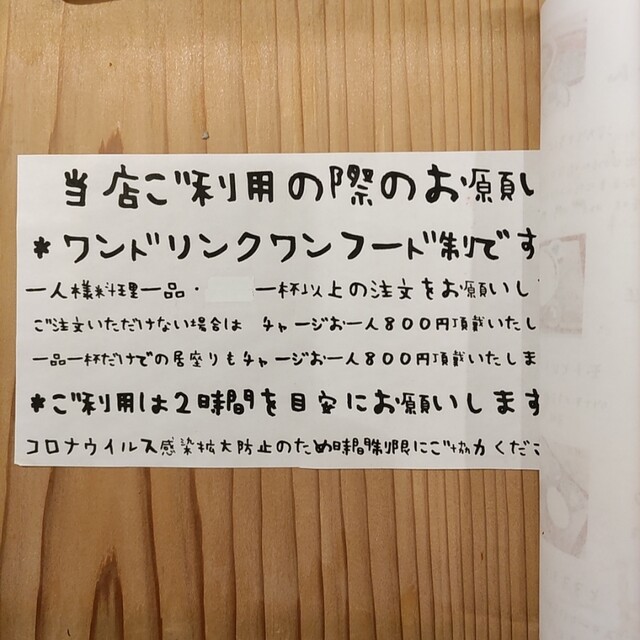 当店ご利用の際のお願い
*ワンドリンクワンフード制です
一人様料理一品・ 一杯以上の注文をお願いし
ご注文いただけない場合は チャージお一人800円頂戴いたし
一品一杯だけでの居座りもチャージお一人800円頂戴いたしま
*ご利用は2時間を目安にお願いします
コロナウイルス感染拡大防止のため時間制限にご協力くださ